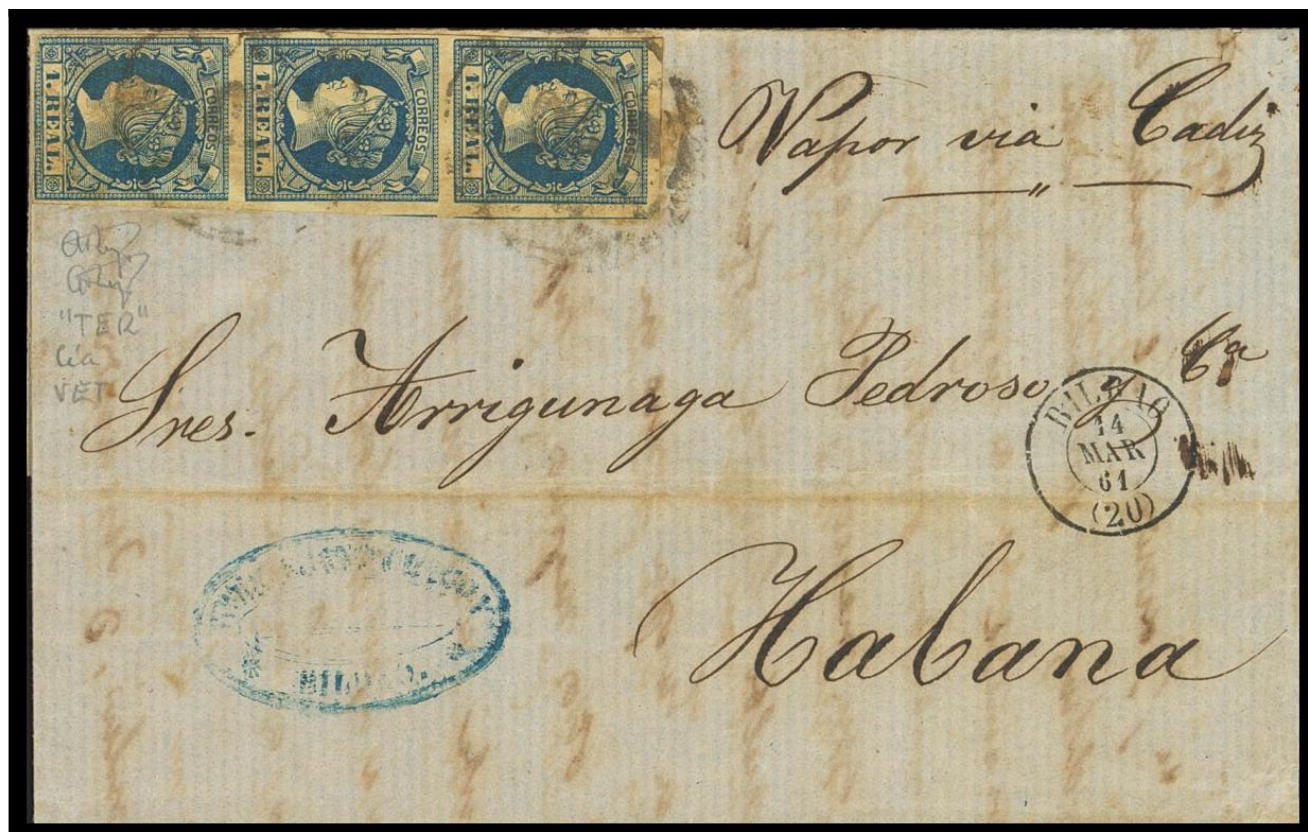 CORREOS
1.REAL.
CORREOS
1.REAL.
CORREOS
1.REAL.
Vapor via Cadiz
"TER"
Cia
VET
Sres. Arrigunaga Pedroso y Ca
BILBAO
14
MAR
61
(20)
Habana
BILBAO.